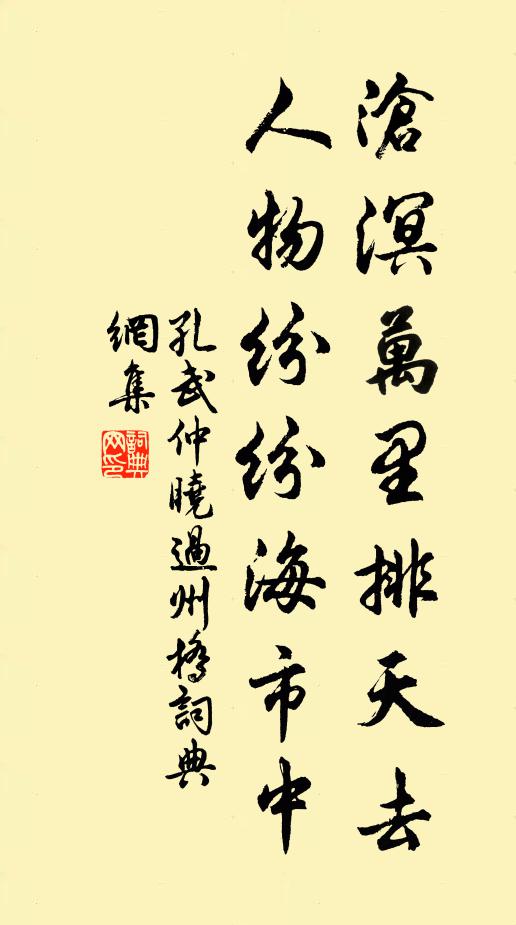 滄溟萬里排天去
人物紛紛海市中
孔武仲曉過州橋詞典
網集
詞典
网印